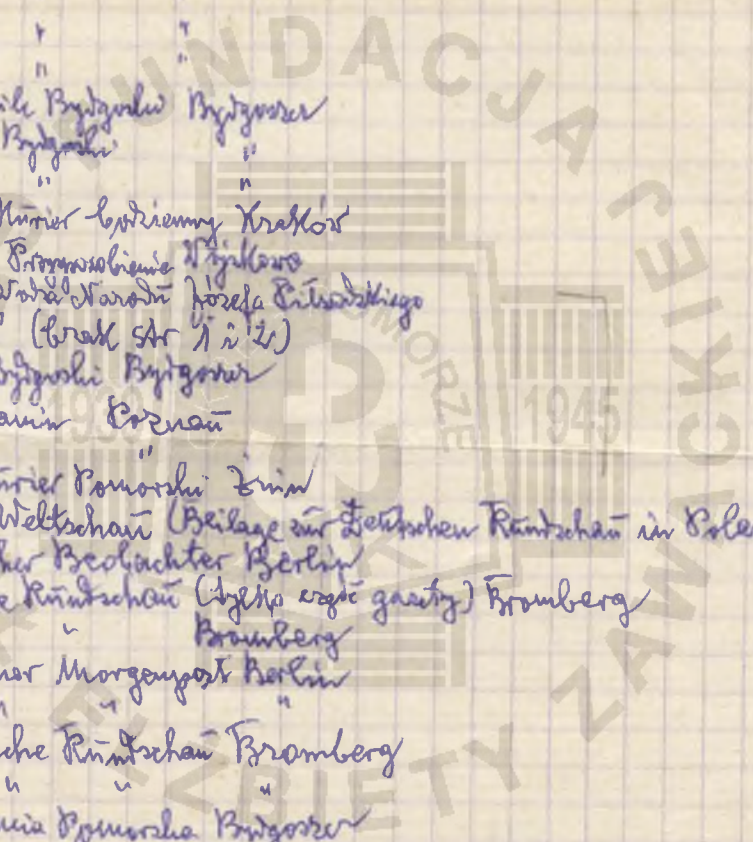 " "
" "
Bydgoski Bydgoszcz
Bydgoski "
" "
Kurier Codzienny Kraków
Przysposobienie Wojskowe
Wodza Narodu Józefa Piłsudskiego
" (brak str 1 i 2)
Bydgoski Bydgoszcz
Poznań
"
Kurier Pomorski Żnin
Weltschau (Beilage zur Deutschen Rundschau in Pole
cher Beobachter Berlin
e Rundschau (tylko część gazety) Bromberg
" Bromberg
ner Morgenpost Berlin
" " "
sche Rundschau Bromberg
" " "
Pomorska Bydgoszcz
FUNDACJA
ZAWACKIEJ
ELŻBIETY
POMORZE
1939
1945
AK